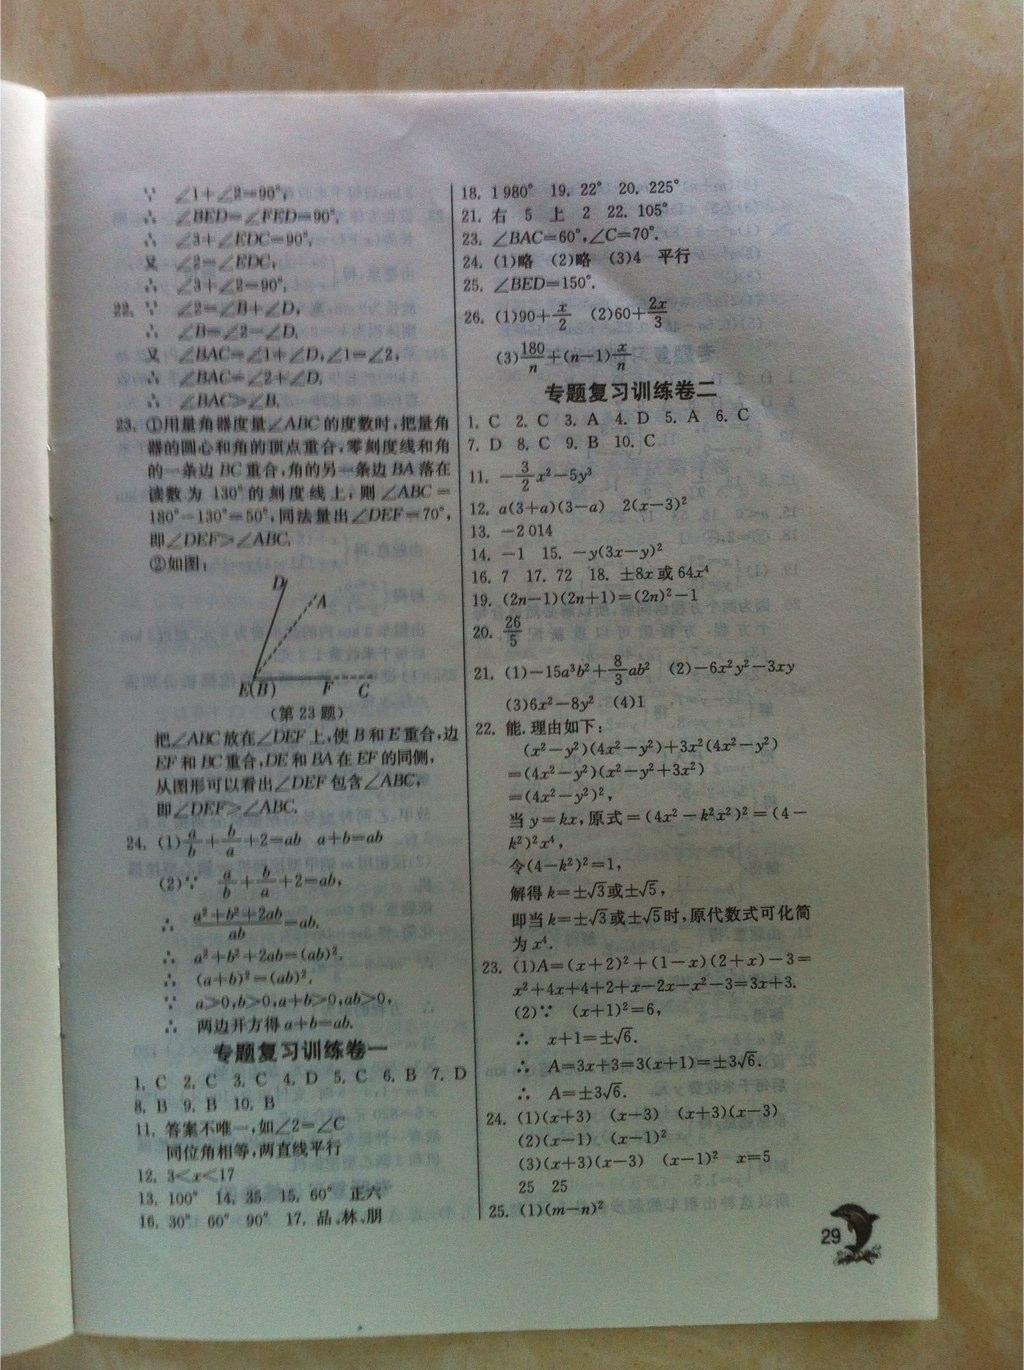 ∵ ∠1+∠2=90°,
∴ ∠BED=∠FED=90°,
∴ ∠3+∠EDC=90°,
又 ∠2=∠EDC,
∴ ∠3+∠2=90°,
22. ∵ ∠2=∠B+∠D,
∴ ∠B=∠2-∠D,
又 ∠BAC=∠1+∠D,∠1=∠2,
∴ ∠BAC=∠2+∠D,
∴ ∠BAC>∠B.
23. ①用量角器度量∠ABC的度数时,把量角
器的圆心和角的顶点重合,零刻度线和角
的一条边BC重合,角的另一条边BA落在
读数为130°的刻度线上,则∠ABC=
180°-130°=50°,同法量出∠DEF=70°,
即∠DEF>∠ABC.
②如图:
D
A
E(B) F C
(第23题)
把∠ABC放在∠DEF上,使B和E重合,边
EF和BC重合,DE和BA在EF的同侧,
从图形可以看出∠DEF包含∠ABC,
即∠DEF>∠ABC.
24. (1)a/b+b/a+2=ab a+b=ab
(2)∵ a/b+b/a+2=ab,
∴ (a²+b²+2ab)/ab=ab.
∴ a²+b²+2ab=(ab)².
∴ (a+b)²=(ab)².
∵ a>0,b>0,a+b>0,ab>0,
∴ 两边开方得a+b=ab.
专题复习训练卷一
1. C 2. C 3. C 4. D 5. C 6. B 7. D
8. B 9. B 10. B
11. 答案不唯一,如∠2=∠C
同位角相等,两直线平行
12. 3<x<17
13. 100° 14. 35 15. 60° 正六
16. 30° 60° 90° 17. 品、林、朋
18. 1 980° 19. 22° 20. 225°
21. 右 5 上 2 22. 105°
23. ∠BAC=60°,∠C=70°.
24. (1)略 (2)略 (3)4 平行
25. ∠BED=150°.
26. (1)90+x/2 (2)60+2x/3
(3)180/n+(n-1)x/n
专题复习训练卷二
1. C 2. C 3. A 4. D 5. A 6. C
7. D 8. C 9. B 10. C
11. -3/2x²-5y³
12. a(3+a)(3-a) 2(x-3)²
13. -2 014
14. -1 15. -y(3x-y)²
16. 7 17. 72 18. ±8x或64x⁴
19. (2n-1)(2n+1)=(2n)²-1
20. 26/5
21. (1)-15a³b²+8/3ab² (2)-6x²y²-3xy
(3)6x²-8y² (4)1
22. 能.理由如下:
(x²-y²)(4x²-y²)+3x²(4x²-y²)
=(4x²-y²)(x²-y²+3x²)
=(4x²-y²)²,
当y=kx,原式=(4x²-k²x²)²=(4-
k²)²x⁴,
令(4-k²)²=1,
解得k=±√3或±√5,
即当k=±√3或±√5时,原代数式可化简
为x⁴.
23. (1)A=(x+2)²+(1-x)(2+x)-3=
x²+4x+4+2+x-2x-x²-3=3x+3.
(2)∵ (x+1)²=6,
∴ x+1=±√6.
∴ A=3x+3=3(x+1)=±3√6.
∴ A=±3√6.
24. (1)(x+3) (x-3) (x+3)(x-3)
(2)(x-1) (x-1)²
(3)(x+3)(x-3) (x-1)² x=5
25 25
25. (1)(m-n)²
29